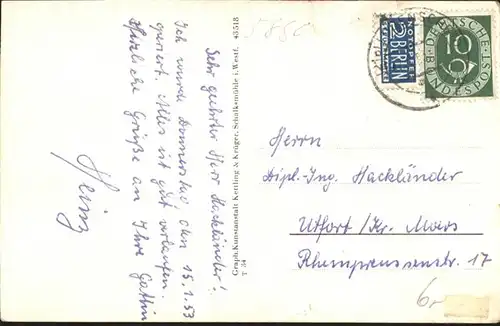 Sehr geehrter Herr Hackländer!
Ich wurde Donnerstag den 15.1.53
operiert. Alles ist gut verlaufen.
Herzliche Grüße an Ihre Gattin
Heinz
Graph. Kunstanstalt Kettling & Krüger, Schalksmühle i. Westf. 43518
T 54
NOTOPFER
2 BERLIN
STEUERMARKE
DEUTSCHE POST
10
BUNDESPOST
Herrn
Dipl.-Ing. Hackländer
Utfort/Kr. Moers
Rheinpreussenstr. 17